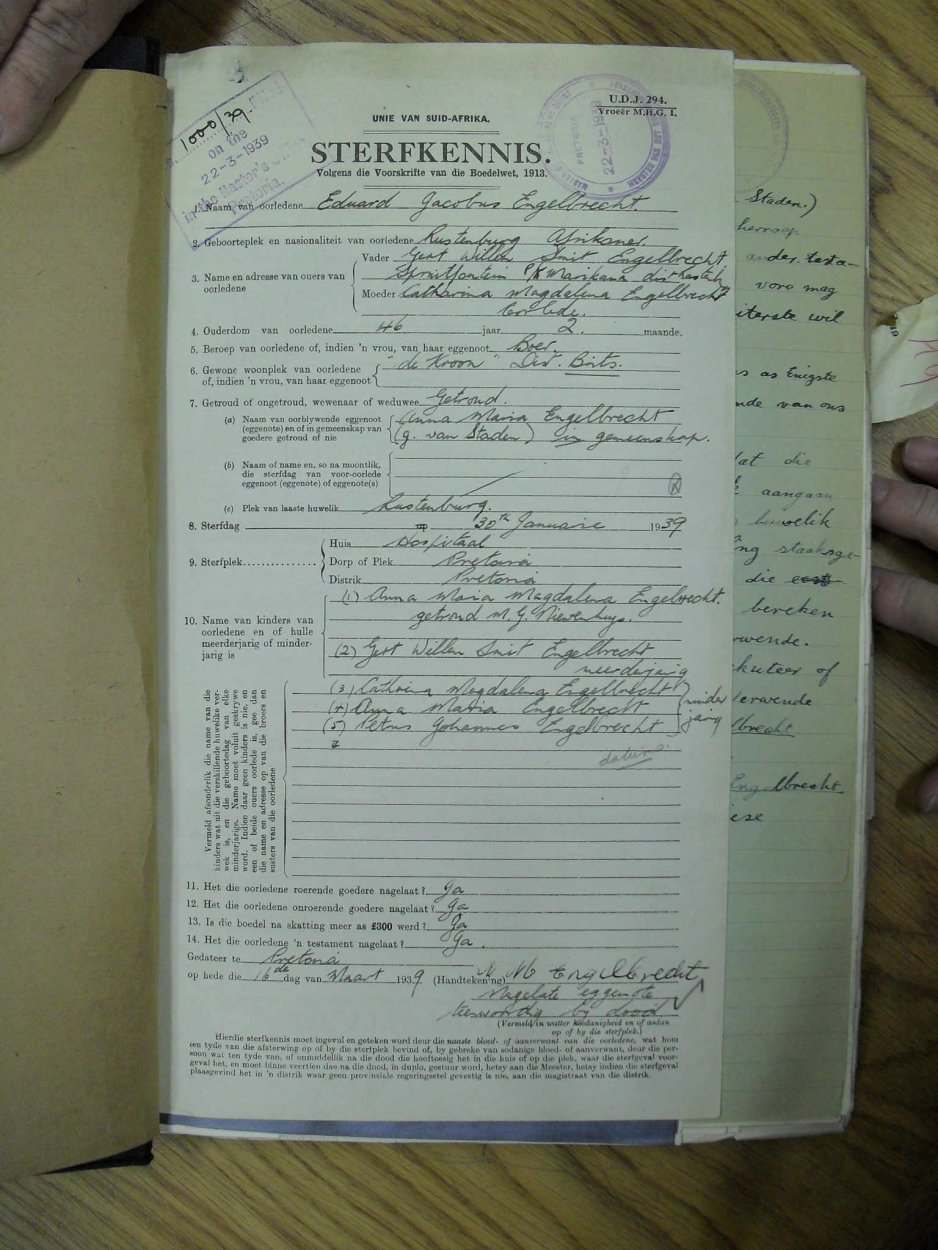 U.D.J. 294.
Vroeër M.H.G. 1.
UNIE VAN SUID-AFRIKA.
1000/39.
on the
22-3-1939
in the Master's Office
Pretoria.
PRETORIA
22-3-1939
STERFKENNIS.
Volgens die Voorskrifte van die Boedelwet, 1913.
1. Naam van oorledene Eduard Jacobus Engelbrecht.
2. Geboorteplek en nasionaliteit van oorledene Rustenburg Afrikaner.
3. Name en adresse van ouers van oorledene
Vader Gert Willem Smit Engelbrecht
P/K Marikana
Moeder Catharina Magdalena Engelbrecht
oorlede.
4. Ouderdom van oorledene 46 jaar 2. maande.
5. Beroep van oorledene of, indien 'n vrou, van haar eggenoot Boer.
6. Gewone woonplek van oorledene of, indien 'n vrou, van haar eggenoot "de Kroon" Dist. Brits.
7. Getroud of ongetroud, wewenaar of weduwee Getroud.
(a) Naam van oorblywende eggenoot (eggenote) en of in gemeenskap van goedere getroud of nie
Anna Maria Engelbrecht
(g. van Staden) in gemeenskap.
(b) Naam of name en, so na moontlik, die sterfdag van voor-oorlede eggenoot (eggenote) of eggenote(s)
(c) Plek van laaste huwelik Rustenburg.
8. Sterfdag op 30th Januarie 1939
9. Sterfplek
Huis Hospitaal
Dorp of Plek Pretoria
Distrik Pretoria
10. Name van kinders van oorledene en of hulle meerderjarig of minderjarig is
(1) Anna Maria Magdalena Engelbrecht.
getroud m. G. Nieuwenhuys.
(2) Gert Willem Smit Engelbrecht
meerderjarig
(3) Cathrina Magdalena Engelbrecht
(4) Anna Maria Engelbrecht
(5) Petrus Johannes Engelbrecht
minder
jarig
Vermeld afsonderlik die name van die kinders wat uit die verskillende huwelike verwek is, en die geboortedag van elke minderjarige. Name moet voluit geskrywe word. Indien daar geen kinders is nie, en een of beide ouers oorlede is, gee dan die name en adresse op van die broers en susters van die oorledene
11. Het die oorledene roerende goedere nagelaat? Ja
12. Het die oorledene onroerende goedere nagelaat? Ja
13. Is die boedel na skatting meer as £300 werd? Ja
14. Het die oorledene 'n testament nagelaat? Ja.
Gedateer te Pretoria
op hede die 16de dag van Maart 1939 (Handtekening) A M Engelbrecht
Nagelate eggenote
teenwoordig by dood.
(Vermeld in watter hoedanigheid en of aldan op of by die sterfplek.)
Hierdie sterfkennis moet ingevul en geteken word deur die naaste bloed- of aanverwant van die oorledene, wat hom
ten tyde van die afsterwing op of by die sterfplek bevind of, by gebreke van sodanige bloed- of aanverwant, deur die per-
soon wat ten tyde van, of onmiddellik na die dood die hooftoesig het in die huis of op die plek, waar die sterfgeval voor-
geval het, en moet binne veertien dae na die dood, in duplo, gestuur word, hetsy aan die Meester, hetsy indien die sterfgeval
plaasgevind het in 'n distrik waar geen provinsiale regeringsetel gevestig is nie, aan die magistraat van die distrik.
Staden.)
herroep
ander testa-
voro mag
wil
as Enigste
van ons
dat die
aangaan
huwelik
staaksge-
die
bereken
of
Engelbrecht